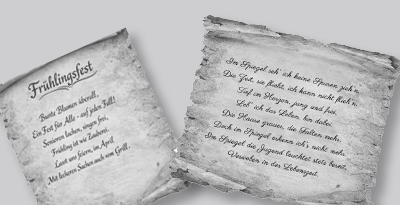 Frühlingsfest
Bunte Blumen überall,
Ein Fest für Alle - auf jeden Fall!
Senioren lachen, singen frei,
Frühling ist wie Zauberei.
Lasst uns feiern, im April
Mit leckeren Sachen auch vom Grill.
Im Spiegel seh' ich keine Spuren zieh'n,
Die Zeit, sie flieht, ich kann nicht flieh'n.
Tief im Herzen, jung und frei,
Leb' ich das Leben, bin dabei.
Die Haare grauer, die Falten mehr,
Doch im Spiegel erkenn ich's nicht mehr.
Im Spiegel die Jugend leuchtet stets bereit,
Verwoben in der Lebenszeit.